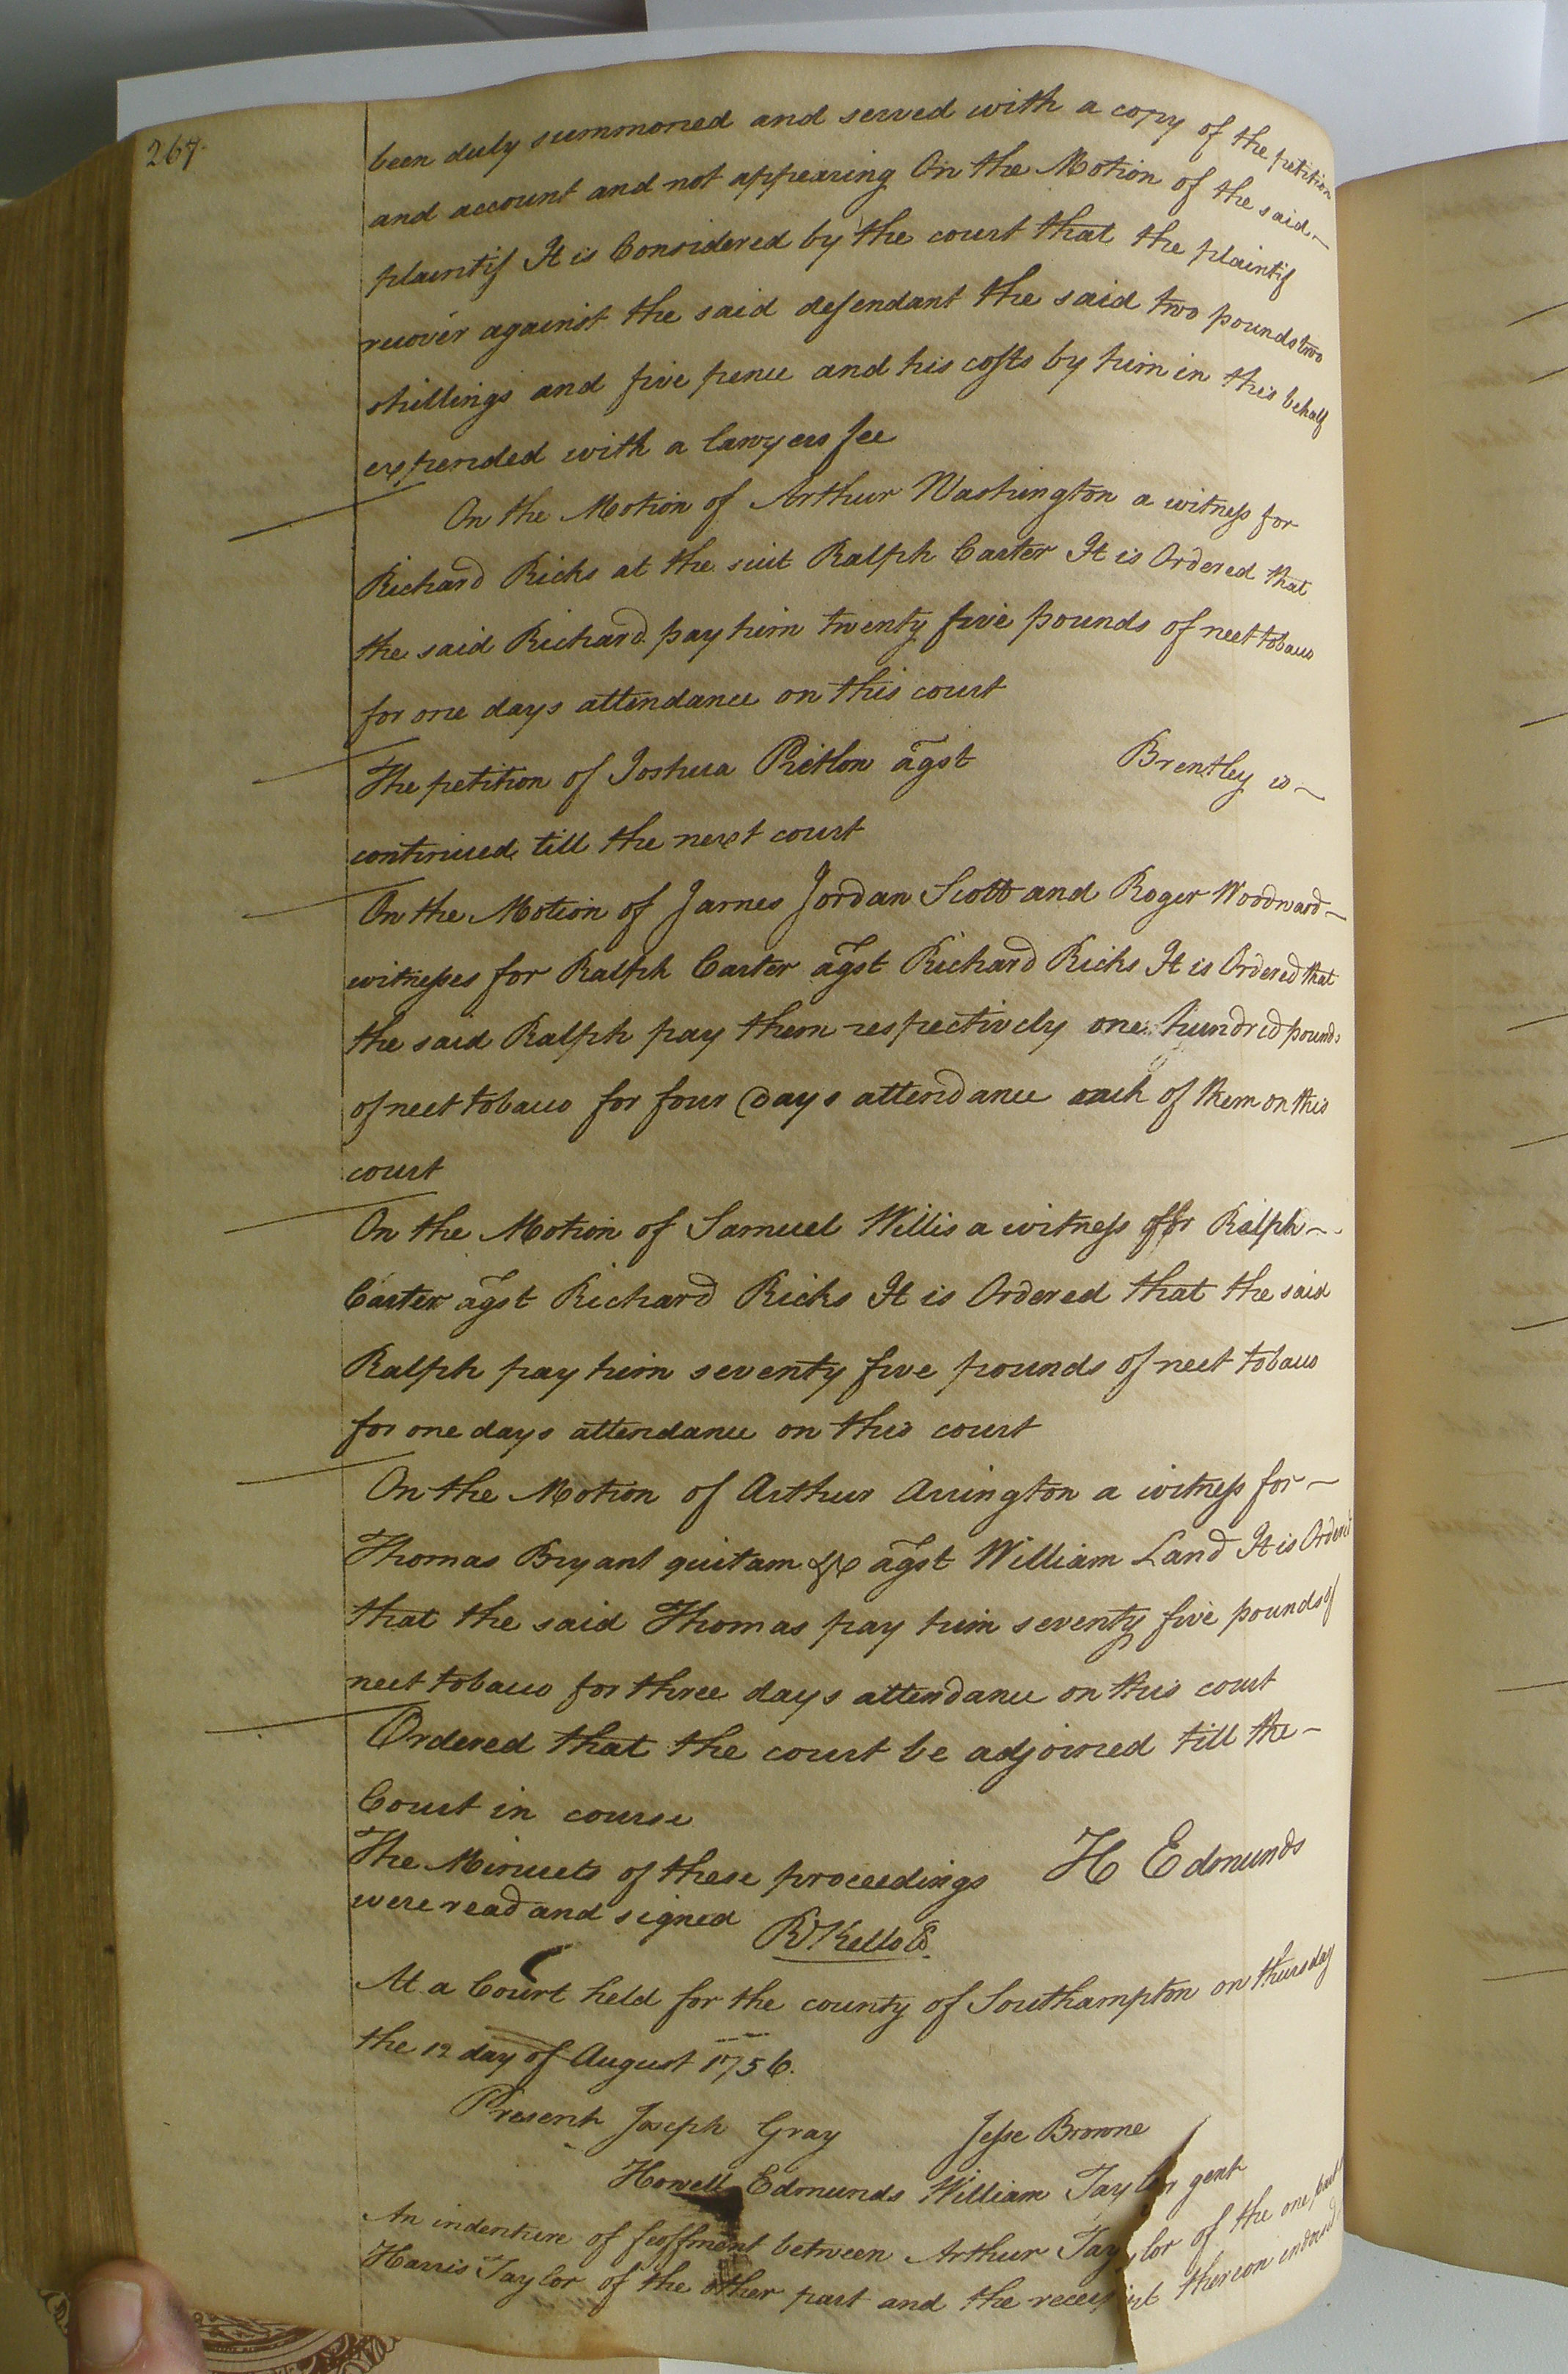 267.
been duly summoned and served with a copy of the petition
and account and not appearing On the Motion of the said
plaintif It is Considered by the court that the plaintif
recover against the said defendant the said two pounds two
shillings and five pence and his costs by him in this behalf
expended with a lawyers fee
On the Motion of Arthur Washington a witness for
Richard Ricks at the suit Ralph Carter It is Ordered that
the said Richard pay him twenty five pounds of neet tobacco
for one days attendance on this court
The petition of Joshua agst Brentley is
continued till the next court
On the Motion of James Jordan Scott and Roger Woodward
witnesses for Ralph Carter agst Richard Ricks It is Ordered that
the said Ralph pay them respectively one hundred pounds
of neet tobacco for four days attendance each of them on this
court
On the Motion of Samuel Willis a witness for Ralph
Carter agst Richard Ricks It is Ordered that the said
Ralph pay him seventy five pounds of neet tobacco
for one days attendance on this court
On the Motion of Arthur Arrington a witness for
Thomas Bryant quitam &c agst William Land It is Ordered
that the said Thomas pay him seventy five pounds of
neet tobacco for three days attendance on this court
Ordered that the court be adjoined till the
Court in course
The Minuets of these proceedings H Edmunds
were read and signed
R Kello
At a Court held for the county of Southampton on thursday
the 12 day of August 1756.
Present Joseph Gray Jesse Browne
Howell Edmunds William Taylor gent
An indenture of feoffment between Arthur Taylor of the one part
Harris Taylor of the other part and the receipt thereon endorsed